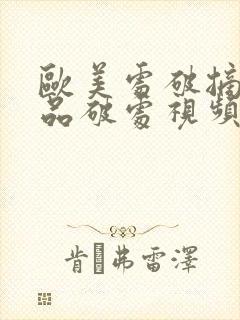 歐美處破摘
品破處視頻
肯 弗雷澤